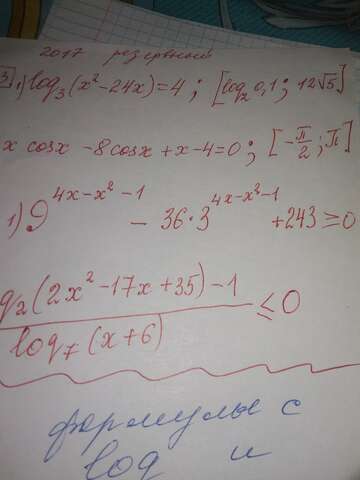 2017 резервный
3 1) log₃(x²-24x)=4 ; [log₂ 0,1 ; 12√5]
x cosx -8cosx +x-4=0 ; [-π/2 ; π]
1) 9^(4x-x²-1) - 36·3^(4x-x²-1) +243 ≥0
g₂(2x²-17x+35)-1
≤0
log₇(x+6)
формулы с
log и